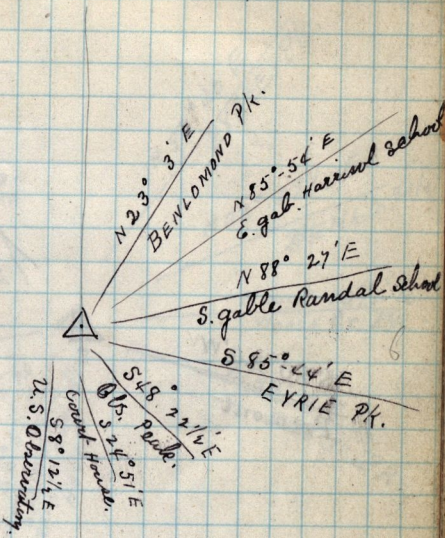 N 23° 3' E
BENLOMOND PK.
N 85°-54' E
E. gab. Harrisol School
N 88° 27' E
S. gable Randal School
S 85°-44' E
EYRIE PK.
S 48° 22 1/2' E
Obs. peak.
S 24° 51' E
Court House.
S 8° 12 1/2 E
U.S. Observatory.
6